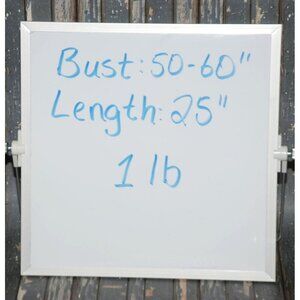 Bust: 50-60"
Length: 25"
1 lb